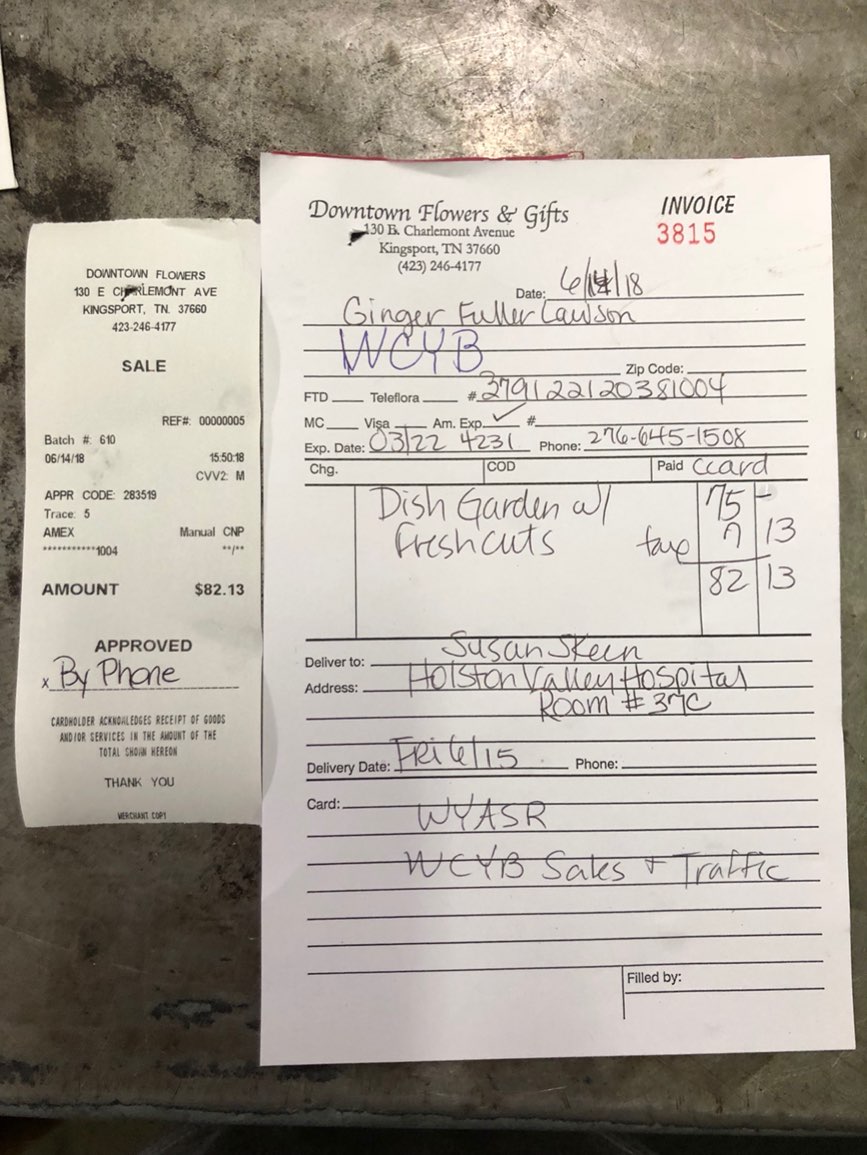 DOWNTOWN FLOWERS
130 E CHARLEMONT AVE
KINGSPORT, TN. 37660
423-246-4177
SALE
REF#: 00000005
Batch #: 610
06/14/18 15:50:18
CVV2: M
APPR CODE: 283519
Trace: 5
AMEX Manual CNP
***********1004 **/**
AMOUNT $82.13
APPROVED
x By Phone
CARDHOLDER ACKNOWLEDGES RECEIPT OF GOODS
AND/OR SERVICES IN THE AMOUNT OF THE
TOTAL SHOWN HEREON
THANK YOU
MERCHANT COPY
Downtown Flowers & Gifts
130 E. Charlemont Avenue
Kingsport, TN 37660
(423) 246-4177
INVOICE
3815
Date: 6/14/18
Ginger Fuller Lawson
WCYB
Zip Code:
FTD Teleflora # [card number omitted]
MC Visa Am. Exp. ✓ #
Exp. Date: [expiration date and security code omitted] Phone: 276-645-1508
Chg. COD Paid ccard
Dish Garden w/ 75 -
Fresh cuts tax 7 13
82 13
Deliver to: Susan Skeen
Address: Holston Valley Hospital
Room # 37C
Delivery Date: FRI 6/15 Phone:
Card:
WYASR
WCYB Sales + Traffic
Filled by: